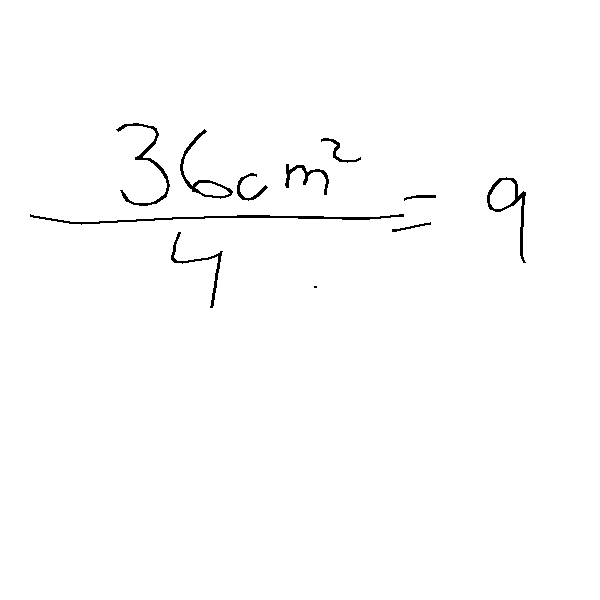 36cm²
4
= 9